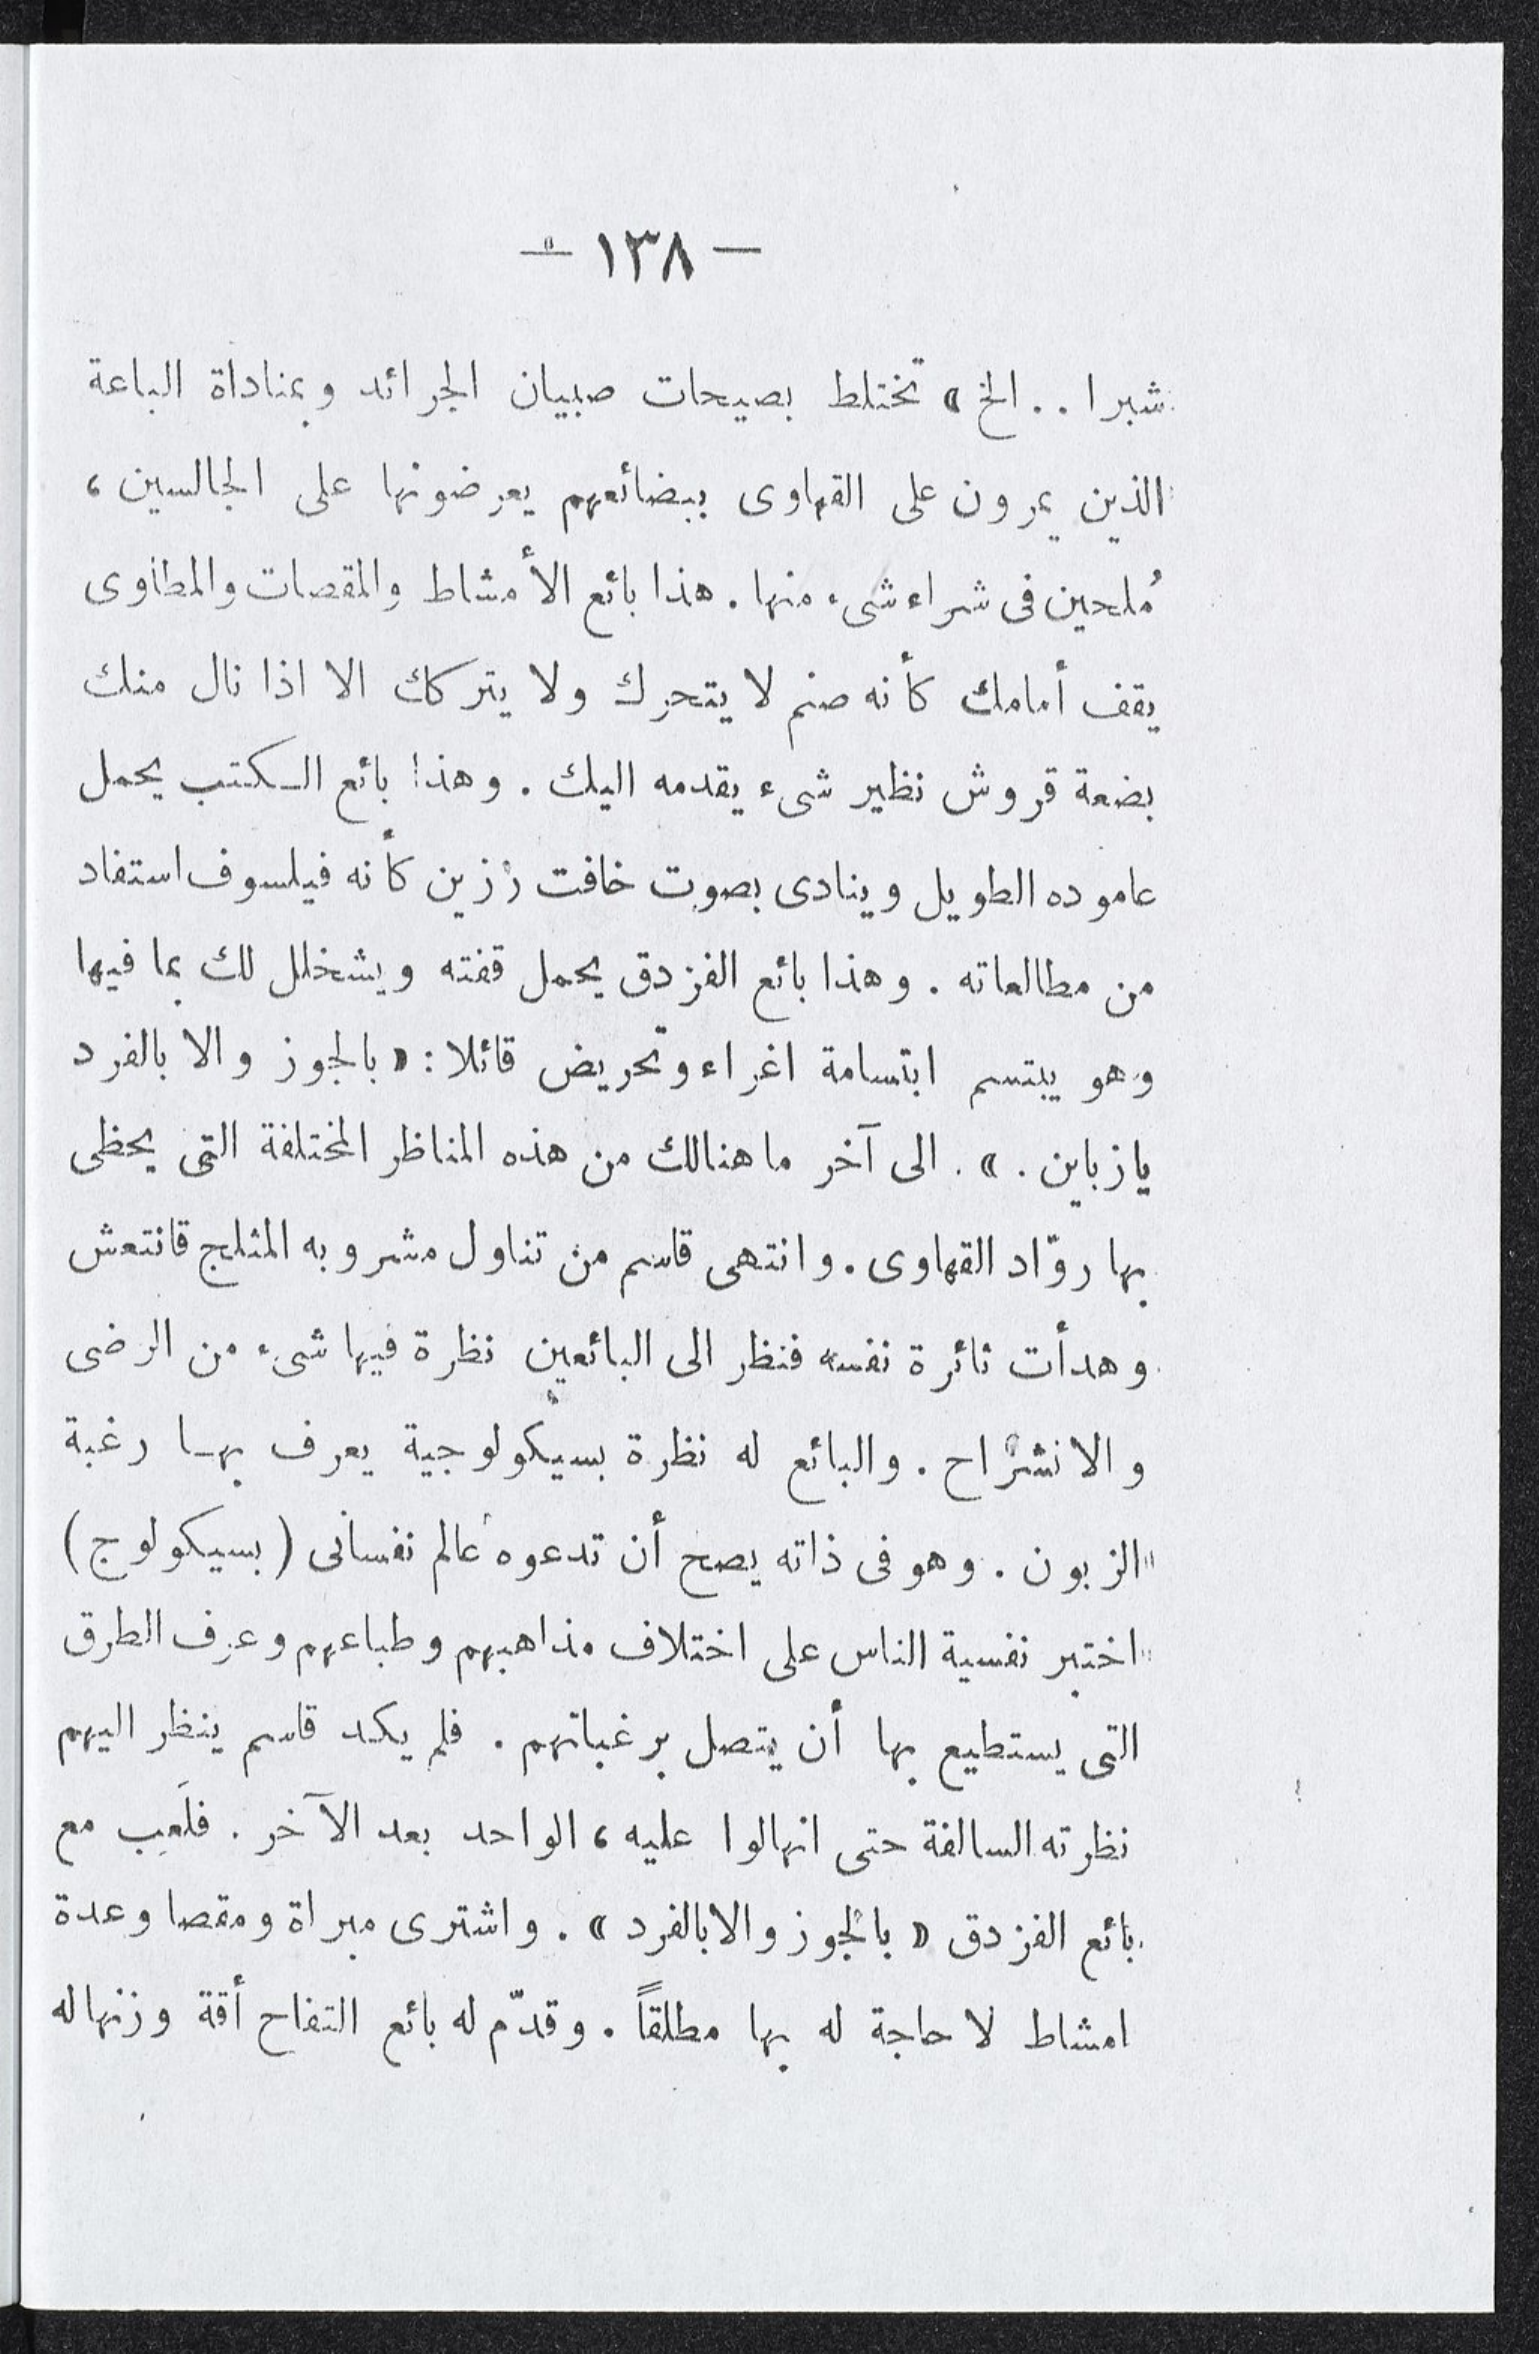 — ١٣٨ —
شبرا . . الخ » تختلط بصيحات صبيان الجرائد وبمناداة الباعة
الذين يمرون على القهاوى ببضائعهم يعرضونها على الجالسين ،
مُلحين فى شراء شىء منها . هذا بائع الأمشاط والمقصات والمطاوى
يقف أمامك كأنه صنم لا يتحرك ولا يتركك الا اذا نال منك
بضعة قروش نظير شىء يقدمه اليك . وهذا بائع الكتب يحمل
عاموده الطويل وينادى بصوت خافت رزين كأنه فيلسوف استفاد
من مطالعاته . وهذا بائع الفزدق يحمل قفته ويشخلل لك بما فيها
وهو يبتسم ابتسامة اغراء وتحريض قائلا : « بالجوز والا بالفرد
يازباين . » . الى آخر ما هنالك من هذه المناظر المختلفة التى يحظى
بها روّاد القهاوى . وانتهى قاسم من تناول مشروبه المثلج فانتعش
وهدأت نائرة نفسه فنظر الى البائعين نظرة فيها شىء من الرضى
والانشراح . والبائع له نظرة بسيكولوجية يعرف بها رغبة
الزبون . وهو فى ذاته يصح أن تدعوه عالم نفسانى ( بسيكولوج )
اختبر نفسية الناس على اختلاف مذاهبهم وطباعهم وعرف الطرق
التى يستطيع بها أن يتصل برغباتهم . فلم يكد قاسم ينظر اليهم
نظرته السالفة حتى انهالوا عليه ، الواحد بعد الآخر . فلَعِب مع
بائع الفزدق « بالجوز والا بالفرد » . واشترى مبراة ومقصا وعدة
امشاط لا حاجة له بها مطلقاً . وقدّم له بائع التفاح أقة وزنها له